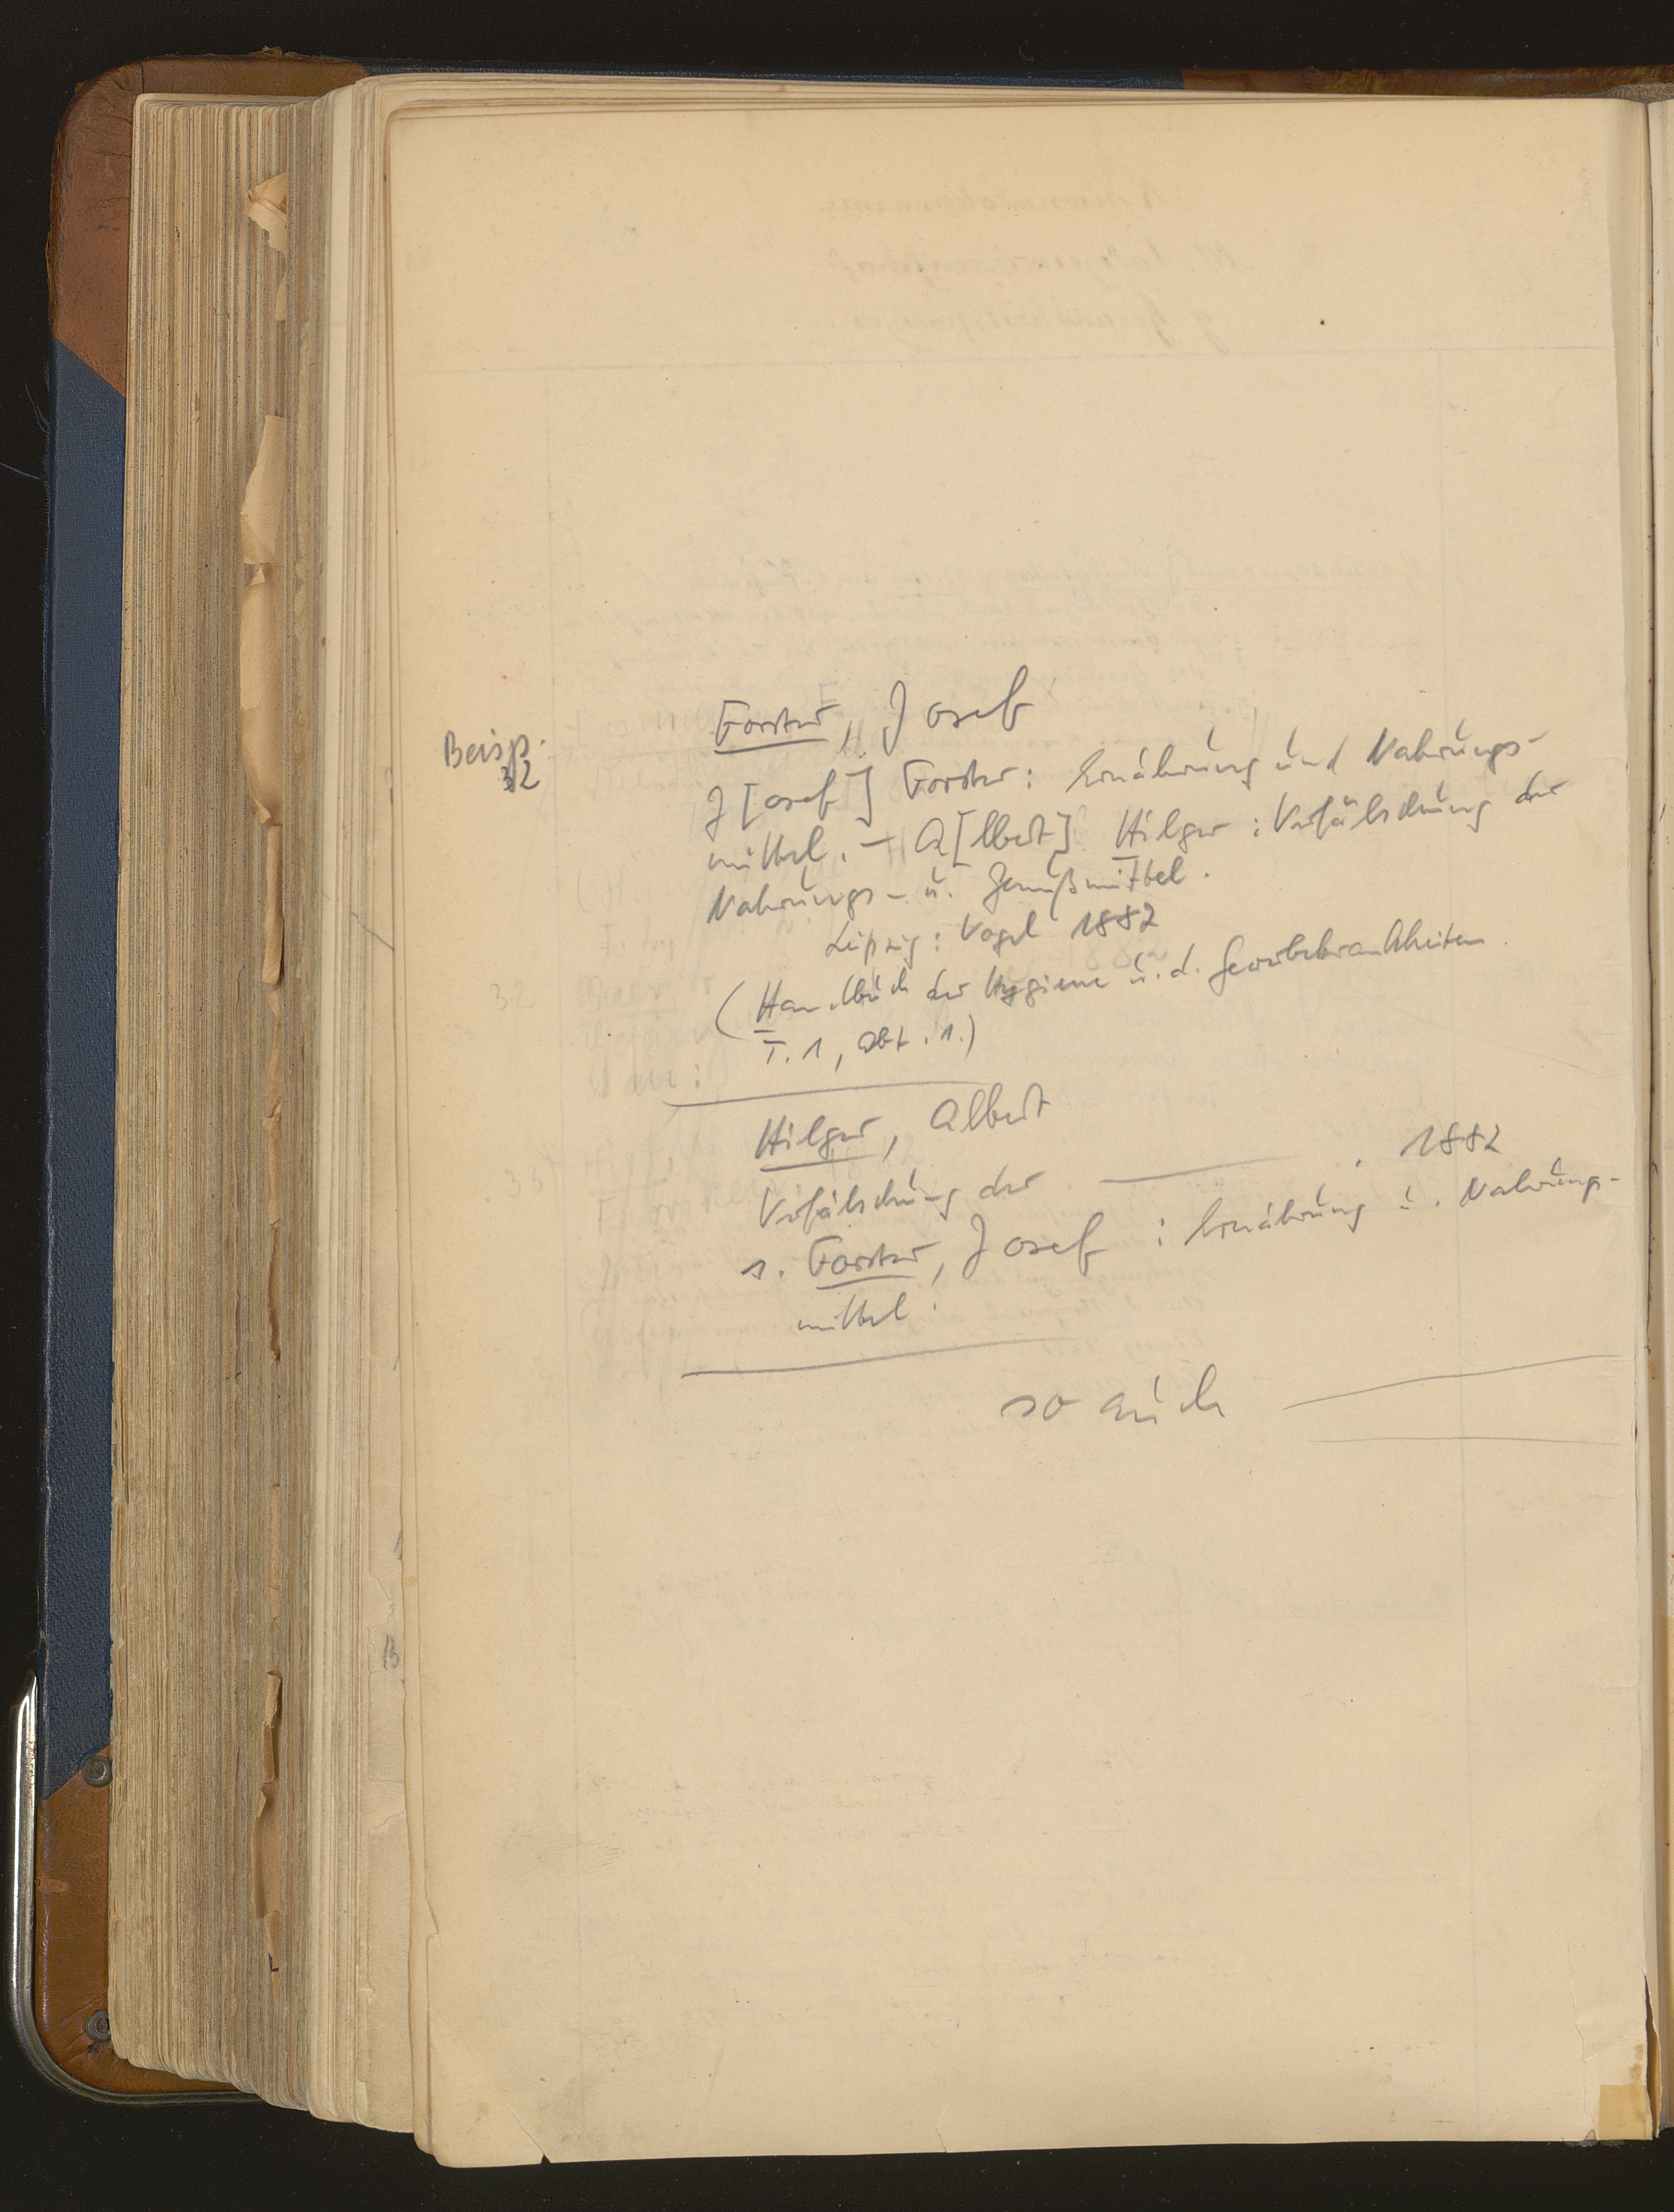 Beisp.
32
Forster, Josef
J[osef] Forster: Ernährung und Nahrungs-
mittel. – A[lbert] Hilger: Verfälschung der
Nahrungs- u. Genußmittel.
Leipzig: Vogel 1882
(Handbuch der Hygiene u. d. Gewerbekrankheiten.
T. 1, Abt. 1.)
Hilger, Albert
Verfälschung der — . 1882
s. Forster, Josef: Ernährung u. Nahrungs-
mittel.
so auch —